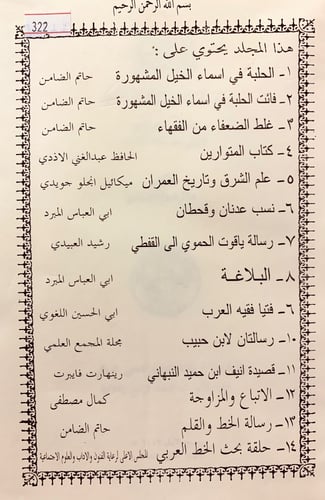 بسم الله الرحمن الرحيم
322
هذا المجلد يحتوي على :
١- الحلبة في اسماء الخيل المشهورة حاتم الضامن
٢- فائت الحلبة في اسماء الخيل المشهورة حاتم الضامن
٣- غلط الضعفاء من الفقهاء حاتم الضامن
٤- كتاب المتوارين الحافظ عبدالغني الاذدي
٥- علم الشرق وتاريخ العمران ميكائيل انجلو جويدي
٦- نسب عدنان وقحطان ابي العباس المبرد
٧- رسالة ياقوت الحموي الى القفطي رشيد العبيدي
٨- البلاغة ابي العباس المبرد
٦- فتيا فقيه العرب ابي الحسين اللغوي
١٠- رسالتان لابن حبيب مجلة المجمع العلمي
١١- قصيدة انيف ابن حميد النبهاني رينهارت فايبرت
١٢- الاتباع والمزاوجة كمال مصطفى
١٣- رسالة الخط والقلم حاتم الضامن
١٤- حلقة بحث الخط العربي للمجلس الاعلى لرعاية الفنون والاداب والعلوم الاجتماعية